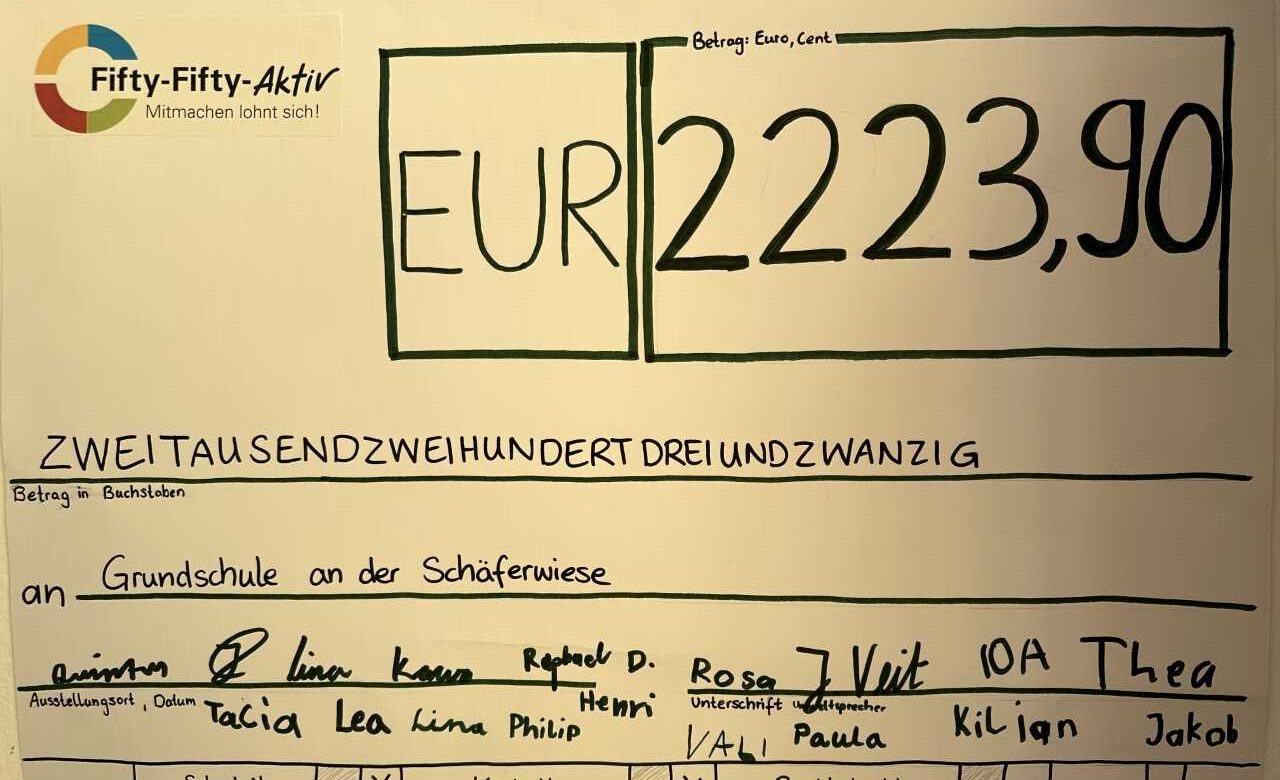 Fifty-Fifty-Aktiv
Mitmachen lohnt sich!
Betrag: Euro, Cent
EUR 2223,90
ZWEITAUSENDZWEIHUNDERTDREIUNDZWANZIG
Betrag in Buchstaben
an Grundschule an der Schäferwiese
Quintus Lina Raphael D. Rosa J Veit IOA Thea
Ausstellungsort, Datum Henri Unterschrift Umweltsprecher
Tacia Lea Lina Philip VALI Paula Kilian Jakob